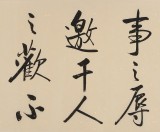 事之辱
邀千人
之歡不